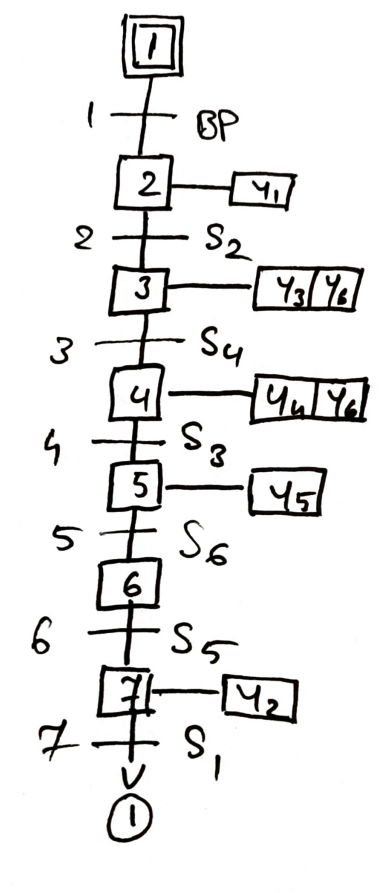 1
1 BP
2 Y1
2 S2
3 Y3 Y6
3 S4
4 Y4 Y6
4 S3
5 Y5
5 S6
6
6 S5
7 Y2
7 S1
1